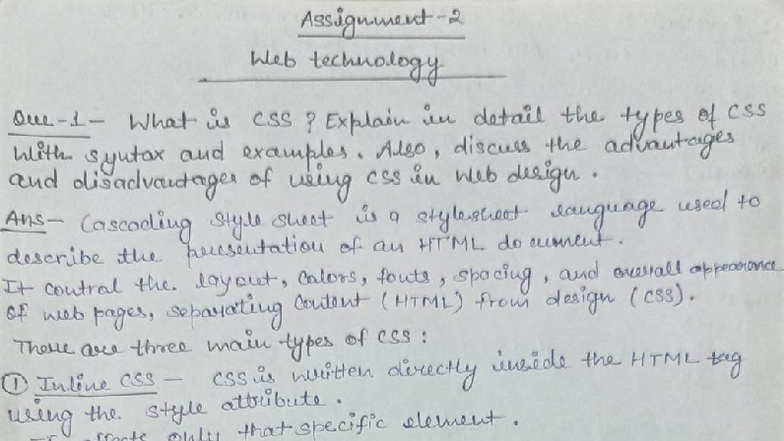 Assignment-2
Web technology
Que-1- What is CSS ? Explain in detail the types of CSS
with syntax and examples. Also, discuss the advantages
and disadvantages of using css in web design.
Ans- Cascading style sheet is a stylesheet language used to
describe the presentation of an HTML document.
It control the layout, colors, fonts, spacing, and overall appearance
of web pages, separating content (HTML) from design (CSS).
There are three main types of CSS:
① Inline CSS - CSS is written directly inside the HTML tag
using the style attribute.
only that specific element.